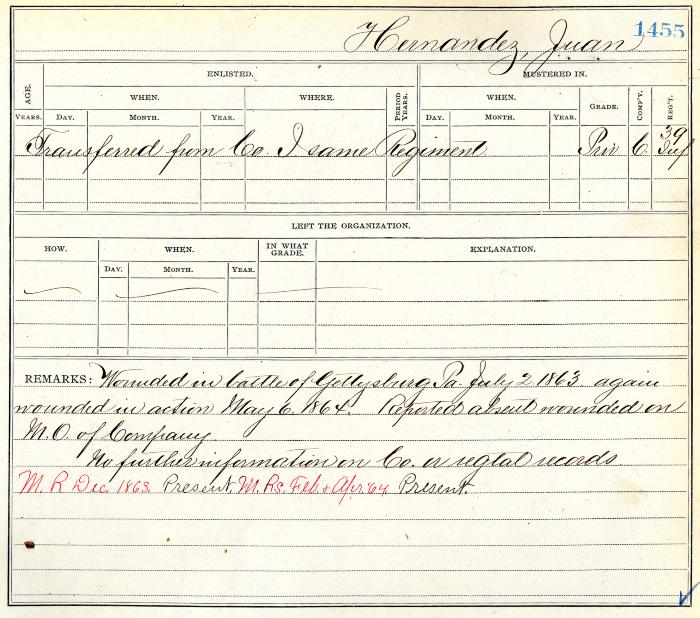 Hernandez, Juan
1455
ENLISTED.
MUSTERED IN.
AGE.
WHEN.
WHERE.
PERIOD YEARS.
WHEN.
GRADE.
COMP'Y.
REG'T.
YEARS.
DAY.
MONTH.
YEAR.
DAY.
MONTH.
YEAR.
Transferred from Co. I same Regiment
Priv
C.
39
Inf
LEFT THE ORGANIZATION.
HOW.
WHEN.
IN WHAT GRADE.
EXPLANATION.
DAY.
MONTH.
YEAR.
REMARKS: Wounded in battle of Gettysburg Pa. July 2 1863 again
wounded in action May 6, 1864 Reported absent wounded on
M.O. of Company
No further information on Co. or regtal records
M. R Dec. 1863. Present. M. Rs. Feb. & Apr. '64 Present.